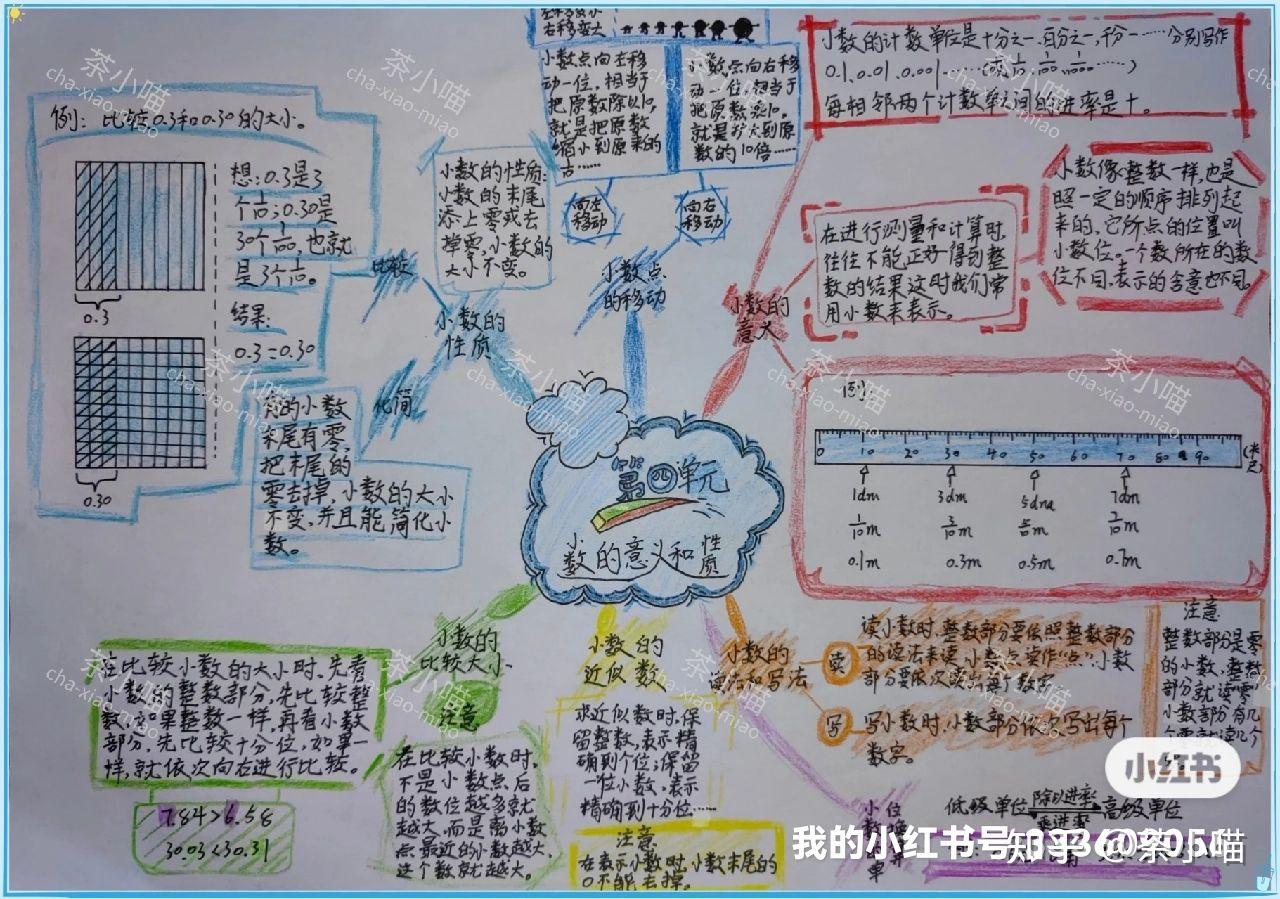 右移变大
小数点向左移
动一位，相当于
把原数除以10，
就是把原数
缩小到原来的
小数点向右移
动一位，相当于
把原数乘10。
就是扩大到原
数的10倍……
向左
移动
向右
移动
小数点
的移动
小数的计数单位是十分之一、百分之一，千分一……分别写作
0.1、0.01、0.001
每相邻两个计数单位间的进率是十。
小数像整数一样，也是
照一定的顺序排列起
来的，它所点的位置叫
小数位。一个数所在的数
位不同，表示的含意也不同。
在进行测量和计算时，
往往不能正好得到整
数的结果这时我们常
用小数来表示。
小数的
意义
例：
0 10 20 30 40 50 60 70 80 90
1dm 3dm 5dm 7dm
0.1m 0.3m 0.5m 0.7m
例：比较0.3和0.30的大小。
想：0.3是3
30个
也就
是3个
结果：
0.3=0.30
0.3
0.30
小数的性质：
小数的末尾
添上零或去
掉零，小数的
大小不变。
比较
小数的
性质
化简
有的小数
末尾有零，
把末尾的
零去掉，小数的大小
不变，并且能简化小
数。
第四单元
小数的意义和性质
小数的
比较大小
在比较小数的大小时，先看
小数的整数部分，先比较整
数，如果整数一样，再看小数
部分，先比较十分位，如果一
样，就依次向右进行比较。
7.84>6.58
30.03<30.31
注意
在比较小数时，
不是小数点后
的数位越多就
越大，而是离小数
点最近的小数越大，
这个数就越大。
小数的
近似数
求近似数时，保
留整数，表示精
确到个位；保留
一位小数，表示
精确到十分位……
注意
在表示小数时，小数末尾的
0不能去掉。
小数的
读法和写法
读
读小数时，整数部分要依照整数部分
的读法来读，小数点读作“点”，小数
部分要依次读出每个数字
写
写小数时，小数部分依次写出每个
数字。
注意
整数部分是零
的小数，整数
部分就读“零”
小数部分有几
个零就读几个
低级单位 除以进率 高级单位
乘进率
小红书
我的小红书号
知乎 @茶小喵
茶小喵
cha-xiao-miao
茶小喵
cha-xiao-miao
茶小喵
cha-xiao-miao
茶小喵
cha-xiao-miao
茶小喵
cha-xiao-miao
茶小喵
cha-xiao-miao
茶小喵
cha-xiao-miao
茶小喵
cha-xiao-miao
茶小喵
cha-xiao-miao
茶小喵
cha-xiao-miao
茶小喵
cha-xiao-miao
茶小喵
cha-xiao-miao